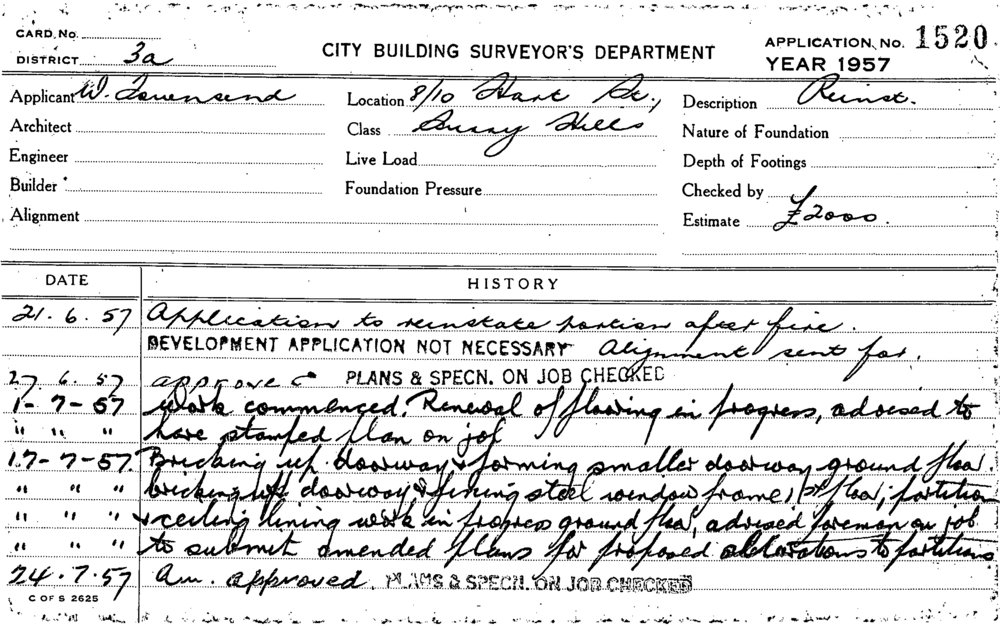 CARD. No.
DISTRICT 3a
CITY BUILDING SURVEYOR'S DEPARTMENT
APPLICATION. No. 1520
YEAR 1957
Applicant W. Townsend Location 8/10 Hart St., Description Reinst.
Architect Class Surry Hills Nature of Foundation
Engineer Live Load Depth of Footings
Builder Foundation Pressure Checked by
Alignment Estimate £2000.
DATE HISTORY
21.6.57 Application to reinstate portion after fire.
DEVELOPMENT APPLICATION NOT NECESSARY Alignment sent for.
27.6.57 approved PLANS & SPECN. ON JOB CHECKED
1-7-57 Work commenced. Renewal of flooring in progress, advised to
" " " have stamped plan on job
17-7-57. Bricking up doorway & forming smaller doorway ground floor.
" " " bricking up doorway & fixing steel window frame, 1st floor, partition
" " " & ceiling lining work in progress ground floor, advised foreman on job
" " " to submit amended plans for proposed alterations to partitions
24.7.57 Am. approved. PLANS & SPECN. ON JOB CHECKED
C OF S 2625